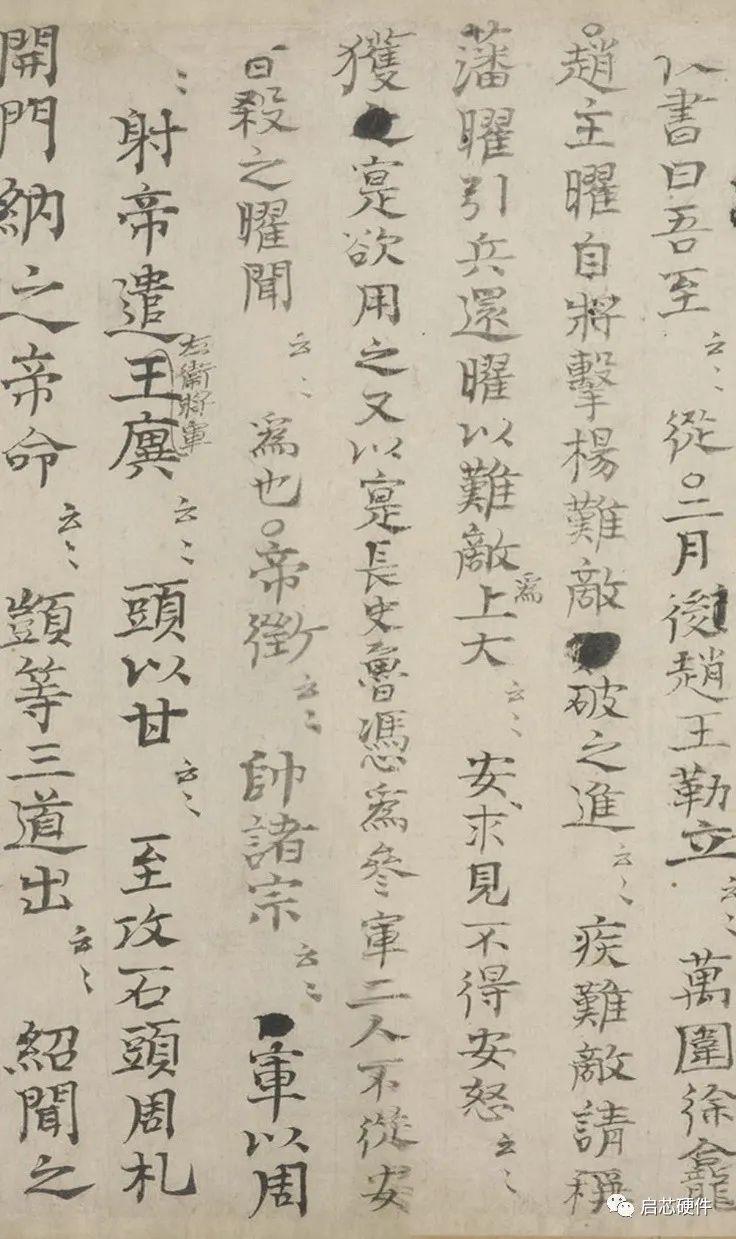 以書曰吾至云〻從○二月後趙王勒立云〻萬圍徐龕
○趙主曜自將擊楊難敵破之進云〻疾難敵請稱
藩曜引兵還曜以難敵爲上大云〻安求見不得安怒云〻
獲之寔欲用之又以寔長史魯憑爲參軍二人不從安
皆殺之曜聞云〻爲也○帝徵云〻帥諸宗云〻軍以周
〻射帝遣王廙右衛將軍云〻頭以甘云〻至攻石頭周札
開門納之帝命云〻顗等三道出云〻紹聞之
启芯硬件